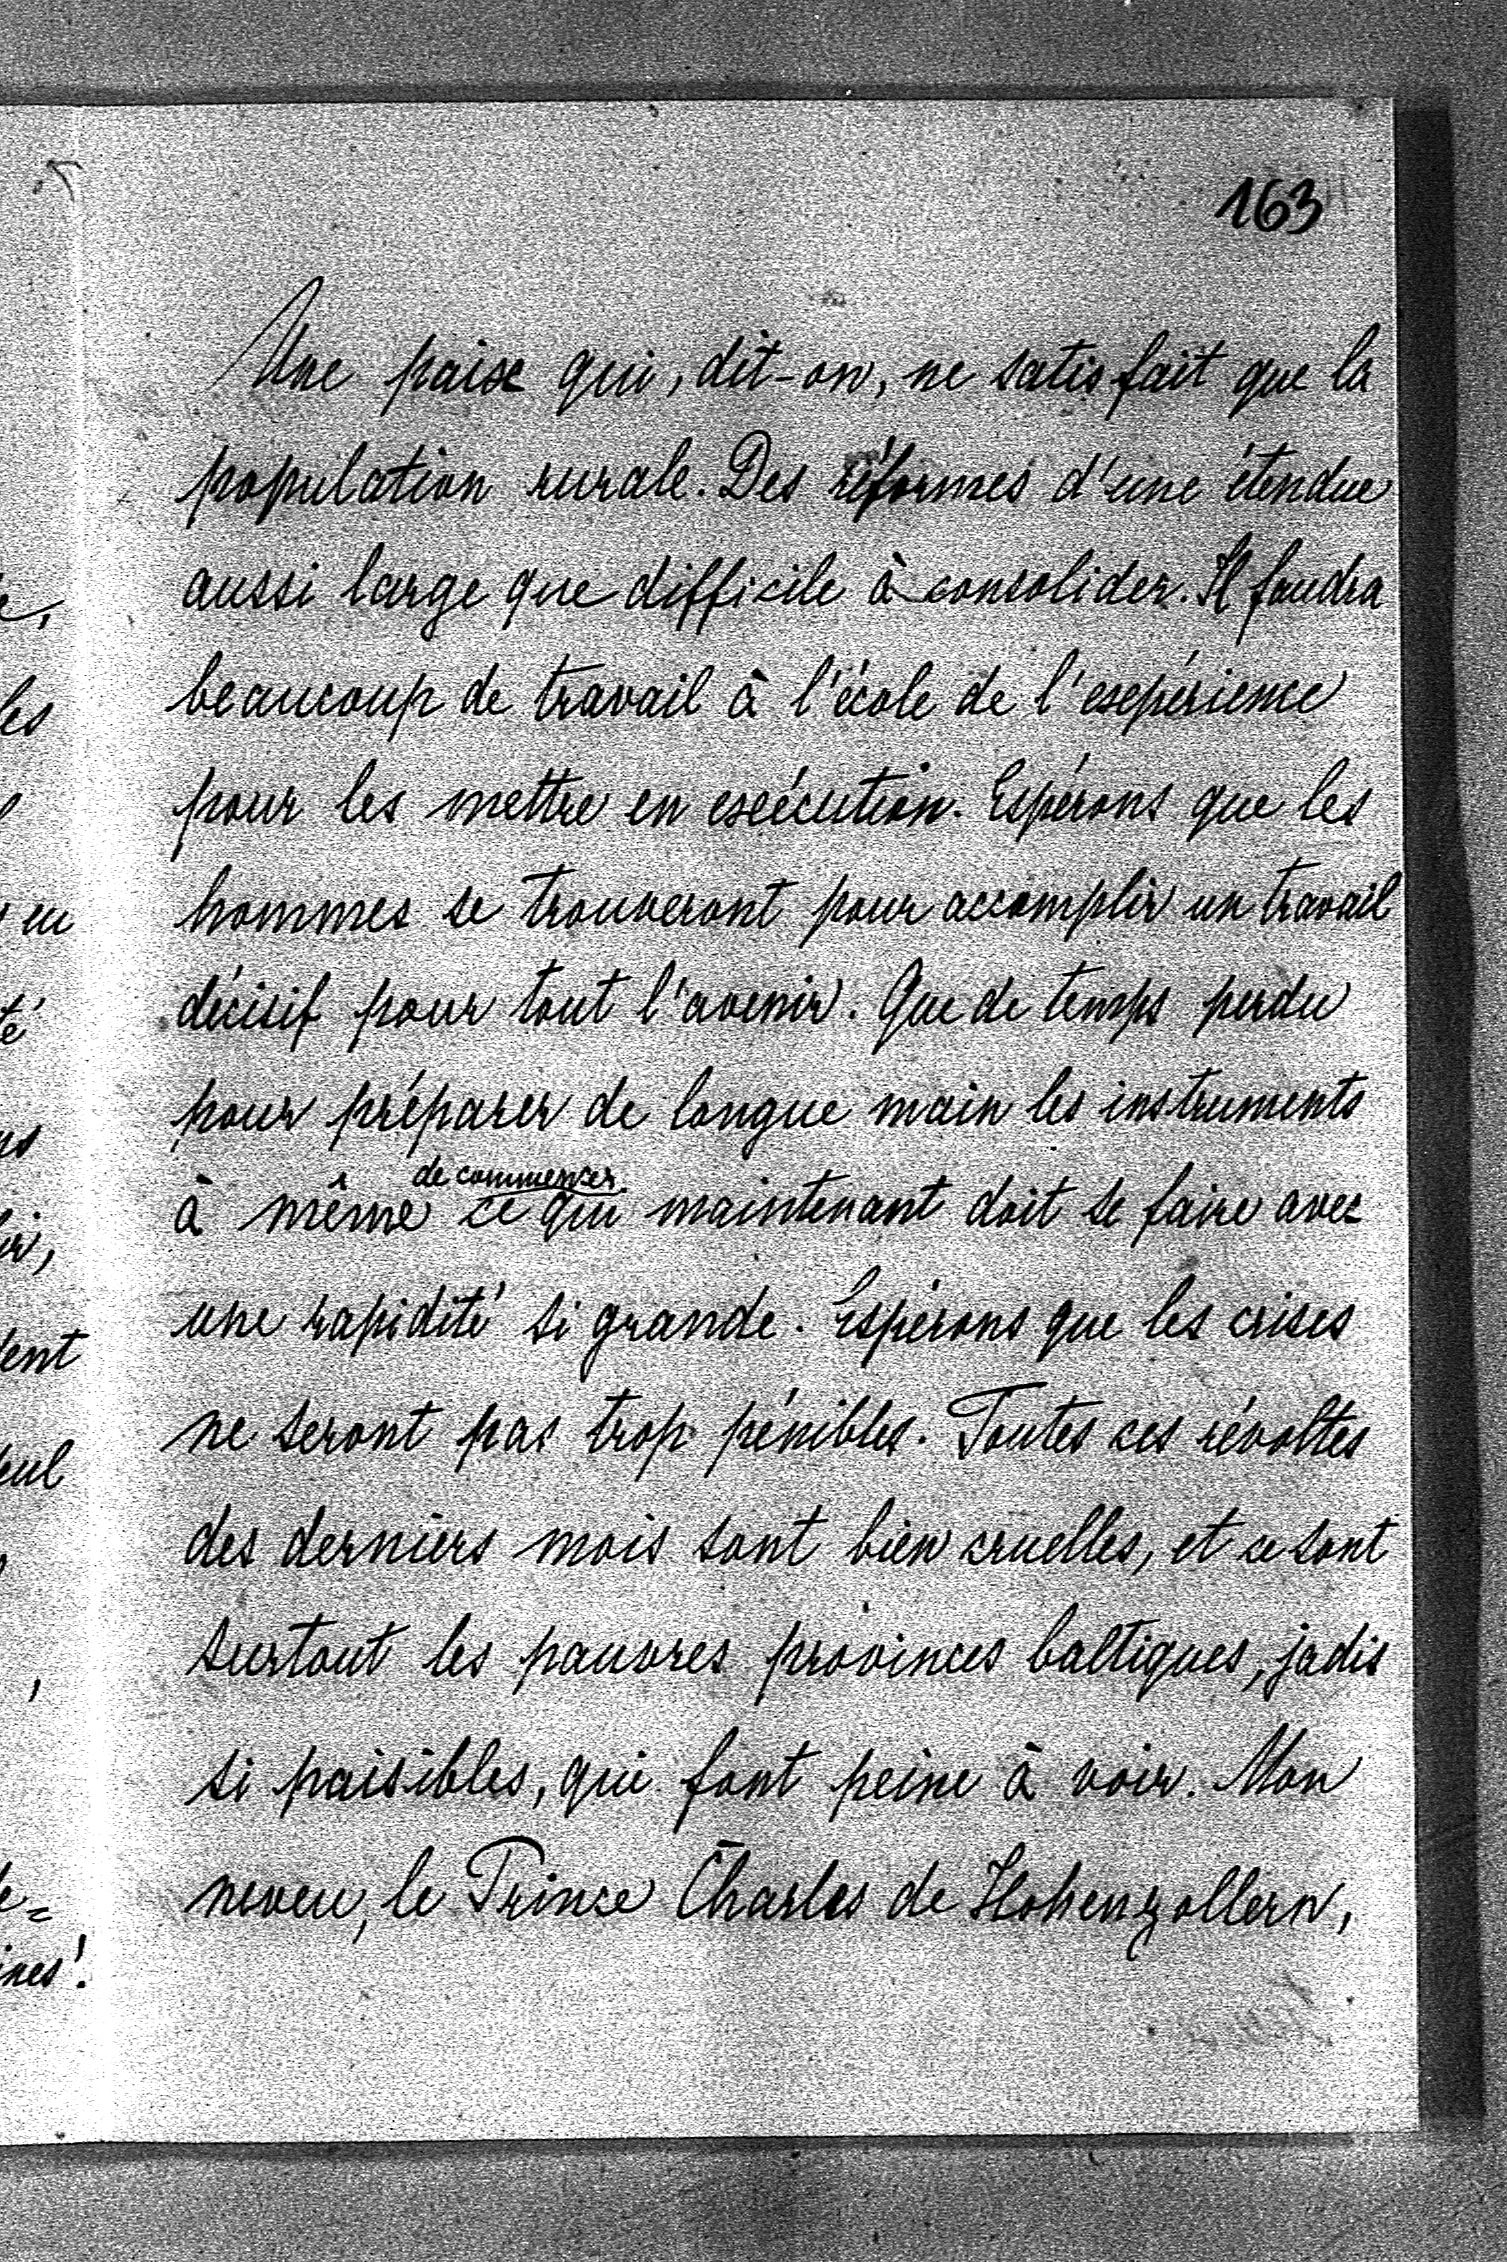 163
Une paix qui, dit-on, ne satisfait que la
population rurale. Des réformes d'une étendue
aussi large que difficile à consolider. Il faudra
beaucoup de travail à l'école de l'expérience
pour les mettre en exécution. Espérons que les
hommes se trouveront pour accomplir un travail
décisif pour tout l'avenir. Que de temps perdu
pour préparer de longue main les instruments
de commencer
à même ce qui maintenant doit se faire avec
une rapidité si grande. Espérons que les crises
ne seront pas trop pénibles. Toutes ces révoltes
des derniers mois sont bien cruelles, et ce sont
surtout les pauvres provinces baltiques, jadis
si paisibles, qui font peine à voir. Mon
neveu, le Prince Charles de Hohenzollern,